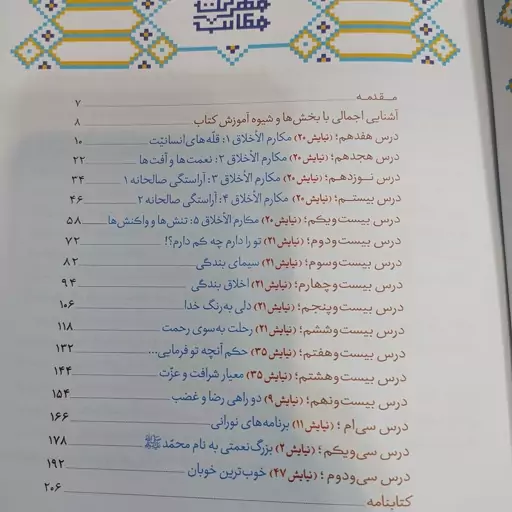 فهرست مطالب
مـقدمـه ۷
آشنایی اجمالی با بخش‌ها و شیوه آموزش کتاب ۸
درس هفدهم؛ (نیایش ۲۰) مکارم الأخلاق ۱: قلّه‌های انسانیّت ۱۰
درس هجدهم؛ (نیایش ۲۰) مکارم الأخلاق ۲: نعمت‌ها و آفت‌ها ۲۲
درس نـوزدهم؛ (نیایش ۲۰) مکارم الأخلاق ۳: آراستگی صالحانه ۱ ۳۴
درس بیستـم؛ (نیایش ۲۰) مکارم الأخلاق ۴: آراستگی صالحانه ۲ ۴۶
درس بیست‌ویکم؛ (نیایش ۲۰) مکارم الأخلاق ۵: تنش‌ها و واکنش‌ها ۵۸
درس بیست‌ودوم؛ (نیایش ۲۱) تو را دارم چه کم دارم؟! ۷۲
درس بیست‌وسوم؛ (نیایش ۲۱) سیمای بندگی ۸۲
درس بیست‌وچهارم؛ (نیایش ۲۱) اخلاق بندگی ۹۴
درس بیست‌وپنجم؛ (نیایش ۲۱) دلی به‌رنگ خدا ۱۰۶
درس بیست‌وششم؛ (نیایش ۲۱) رحلت به‌سوی رحمت ۱۱۸
درس بیست‌وهفتم؛ (نیایش ۳۵) حکم آنچه تو فرمایی... ۱۳۲
درس بیست‌وهشتم؛ (نیایش ۳۵) معیار شرافت و عزّت ۱۴۴
درس بیست‌ونهم؛ (نیایش ۹) دو راهی رضا و غضب ۱۵۴
درس سی‌اُم؛ (نیایش ۱۱) برنامه‌های نورانی ۱۶۶
درس سی‌ویکم؛ (نیایش ۲) بزرگ‌نعمتی به نام محمّد ﷺ ۱۷۸
درس سی‌ودوم؛ (نیایش ۴۷) خوب‌ترین خوبان ۱۹۲
کتابنامه ۲۰۶